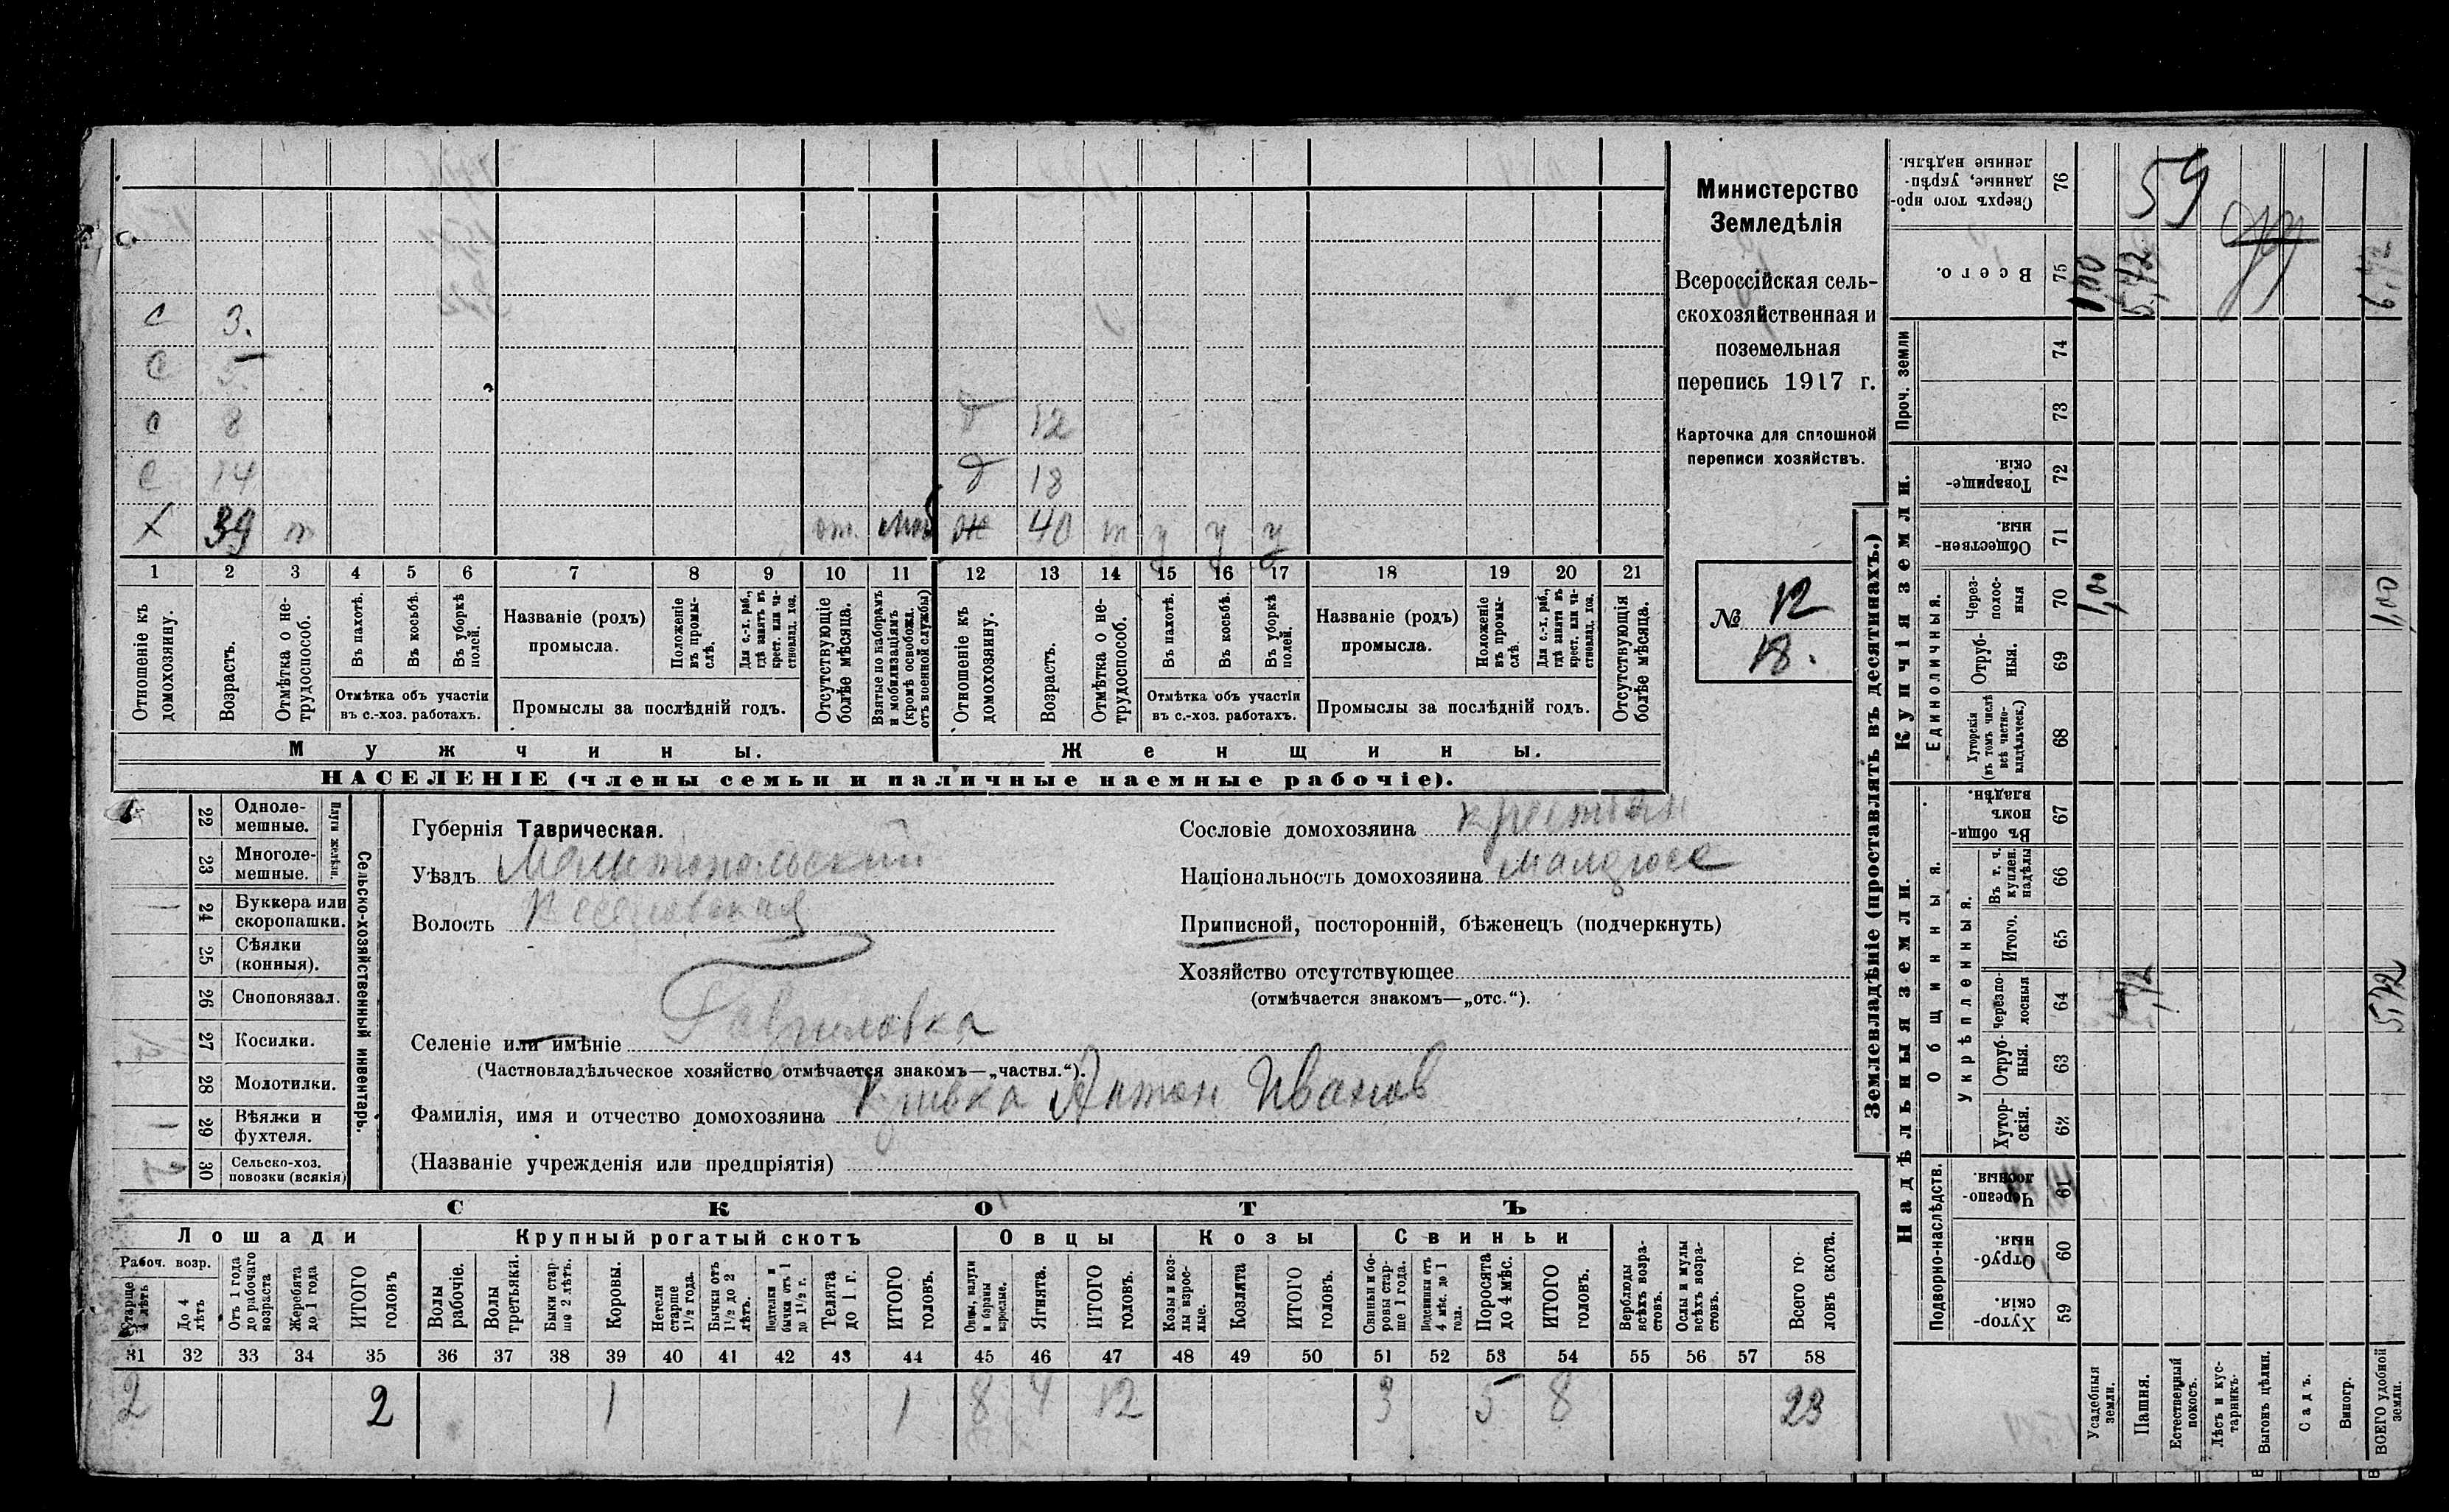 Министерство
Земледѣлія
Всероссійская сель-
скохозяйственная и
поземельная
перепись 1917 г.
Карточка для сплошной
переписи хозяйствъ.
№ 12
18.
с 3.
с 5
с 8 д 12
с 14 д 18
х 39 т от. моб ж 40 т у у у
1 2 3 4 5 6 7 8 9 10 11 12 13 14 15 16 17 18 19 20 21
Отношеніе къ домохозяину.
Возрастъ.
Отмѣтка о не-трудоспособ.
Въ пахотѣ.
Въ косьбѣ.
Въ уборкѣ полей.
Отмѣтка объ участіи
въ с.-хоз. работахъ.
Названіе (родъ)
промысла.
Положеніе въ промы-слѣ.
Для с.-х. раб., гдѣ занятъ въ крест. или ча-стновлад. хоз.
Промыслы за послѣдній годъ.
Отсутствующіе болѣе мѣсяца.
Взятые по наборамъ и мобилизаціямъ (кромѣ освобожд. отъ военной службы)
Отношеніе къ домохозяину.
Возрастъ.
Отмѣтка о не-трудоспособ.
Въ пахотѣ.
Въ косьбѣ.
Въ уборкѣ полей.
Отмѣтка объ участіи
въ с.-хоз. работахъ.
Названіе (родъ)
промысла.
Положеніе въ промы-слѣ.
Для с.-х. раб., гдѣ занятъ въ крест. или ча-стновлад. хоз.
Промыслы за послѣдній годъ.
Отсутствующія болѣе мѣсяца.
Мужчины.
Женщины.
НАСЕЛЕНІЕ (члены семьи и наличные наемные рабочіе).
22 Одноле-мешные.
23 Многоле-мешные.
Плуги желѣзн.
24 Буккера или скоропашки.
25 Сѣялки (конныя).
26 Сноповязал.
27 Косилки.
28 Молотилки.
29 Вѣялки и фухтеля.
30 Сельско-хоз. повозки (всякія)
Сельско-хозяйственный инвентарь.
Губернія Таврическая.
Уѣздъ Мелитопольскій
Волость
Селеніе или имѣніе Гавриловка
(Частновладѣльческое хозяйство отмѣчается знакомъ—„частвл.“).
Фамилія, имя и отчество домохозяина Антон Иванов
(Названіе учрежденія или предпріятія)
Сословіе домохозяина крестьян
Національность домохозяина малоросс
Приписной, посторонній, бѣженецъ (подчеркнуть)
Хозяйство отсутствующее
(отмѣчается знакомъ—„отс.“).
СКОТЪ
Лошади
Крупный рогатый скотъ
Овцы
Козы
Свиньи
Рабоч. возр.
Старше 4 лѣтъ
До 4 лѣтъ
Отъ 1 года до рабочаго возраста
Жеребята до 1 года
ИТОГО головъ
Волы рабочіе.
Волы третьяки.
Быки стар-ше 2 лѣтъ.
Коровы.
Нетели старше 1½ года.
Бычки отъ 1½ до 2 лѣтъ.
Нетелки и бычки отъ 1 до 1½ г.
Телята до 1 г.
ИТОГО головъ.
Овцы, валухи и бараны взрослые.
Ягнята.
ИТОГО головъ.
Козы и коз-лы взрос-лые.
Козлята
ИТОГО головъ.
Свиньи и бо-ровы стар-ше 1 года.
Подсвинки отъ 4 мѣс. до 1 года.
Поросята до 4 мѣс.
ИТОГО головъ.
Верблюды всѣхъ возра-стовъ.
Ослы и мулы всѣхъ возра-стовъ.
Всего го-ловъ скота.
31 32 33 34 35 36 37 38 39 40 41 42 43 44 45 46 47 48 49 50 51 52 53 54 55 56 57 58
2 2 1 1 8 4 12 3 5 8 23
Землевладѣніе (проставлять въ десятинахъ.)
Надѣльныя земли.
Купчія земли.
Проч. земли
Подворно-наслѣдств.
Общинныя.
Укрѣпленныя.
Единоличныя.
76 Сверхъ того про-данные, укрѣп-ленные надѣлы.
59
75 Всего. 1,00 5,42 6,42
74
73
72 Товарище-скія.
71 Обществен-ныя.
70 Через-полос-ныя 1,00 1,00
69 Отруб-ныя.
68 Хуторскія (въ томъ числѣ всѣ частно-владѣльческ.)
67 Въ общин-номъ владѣн.
66 Въ т. ч. куплен. надѣлы
65 Итого.
64 Черезпо-лосныя 5,42
63 Отруб-ныя.
62 Хутор-скія.
61 Черезпо-лосныя
60 Отруб-ныя.
59 Хутор-скія.
Усадебныя земли.
Пашня.
Естественный покосъ.
Лѣсъ и кус-тарникъ.
Выгонъ цѣлин.
Садъ.
Виногр.
ВСЕГО удобной земли.